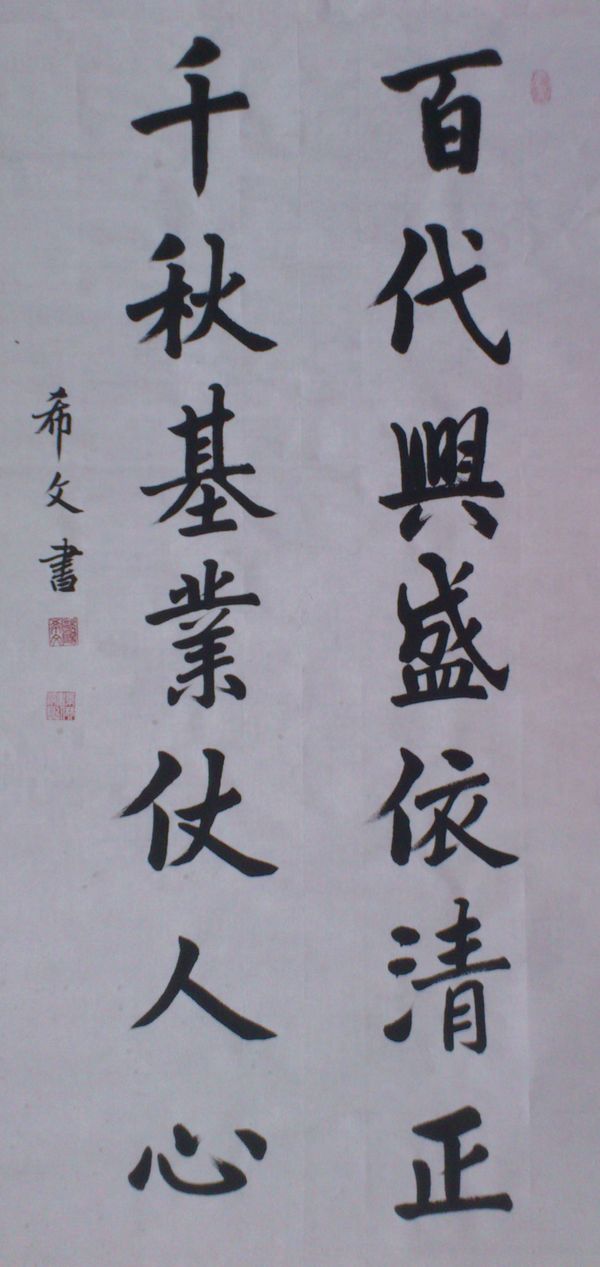 百代興盛依清正
千秋基業仗人心
希文書